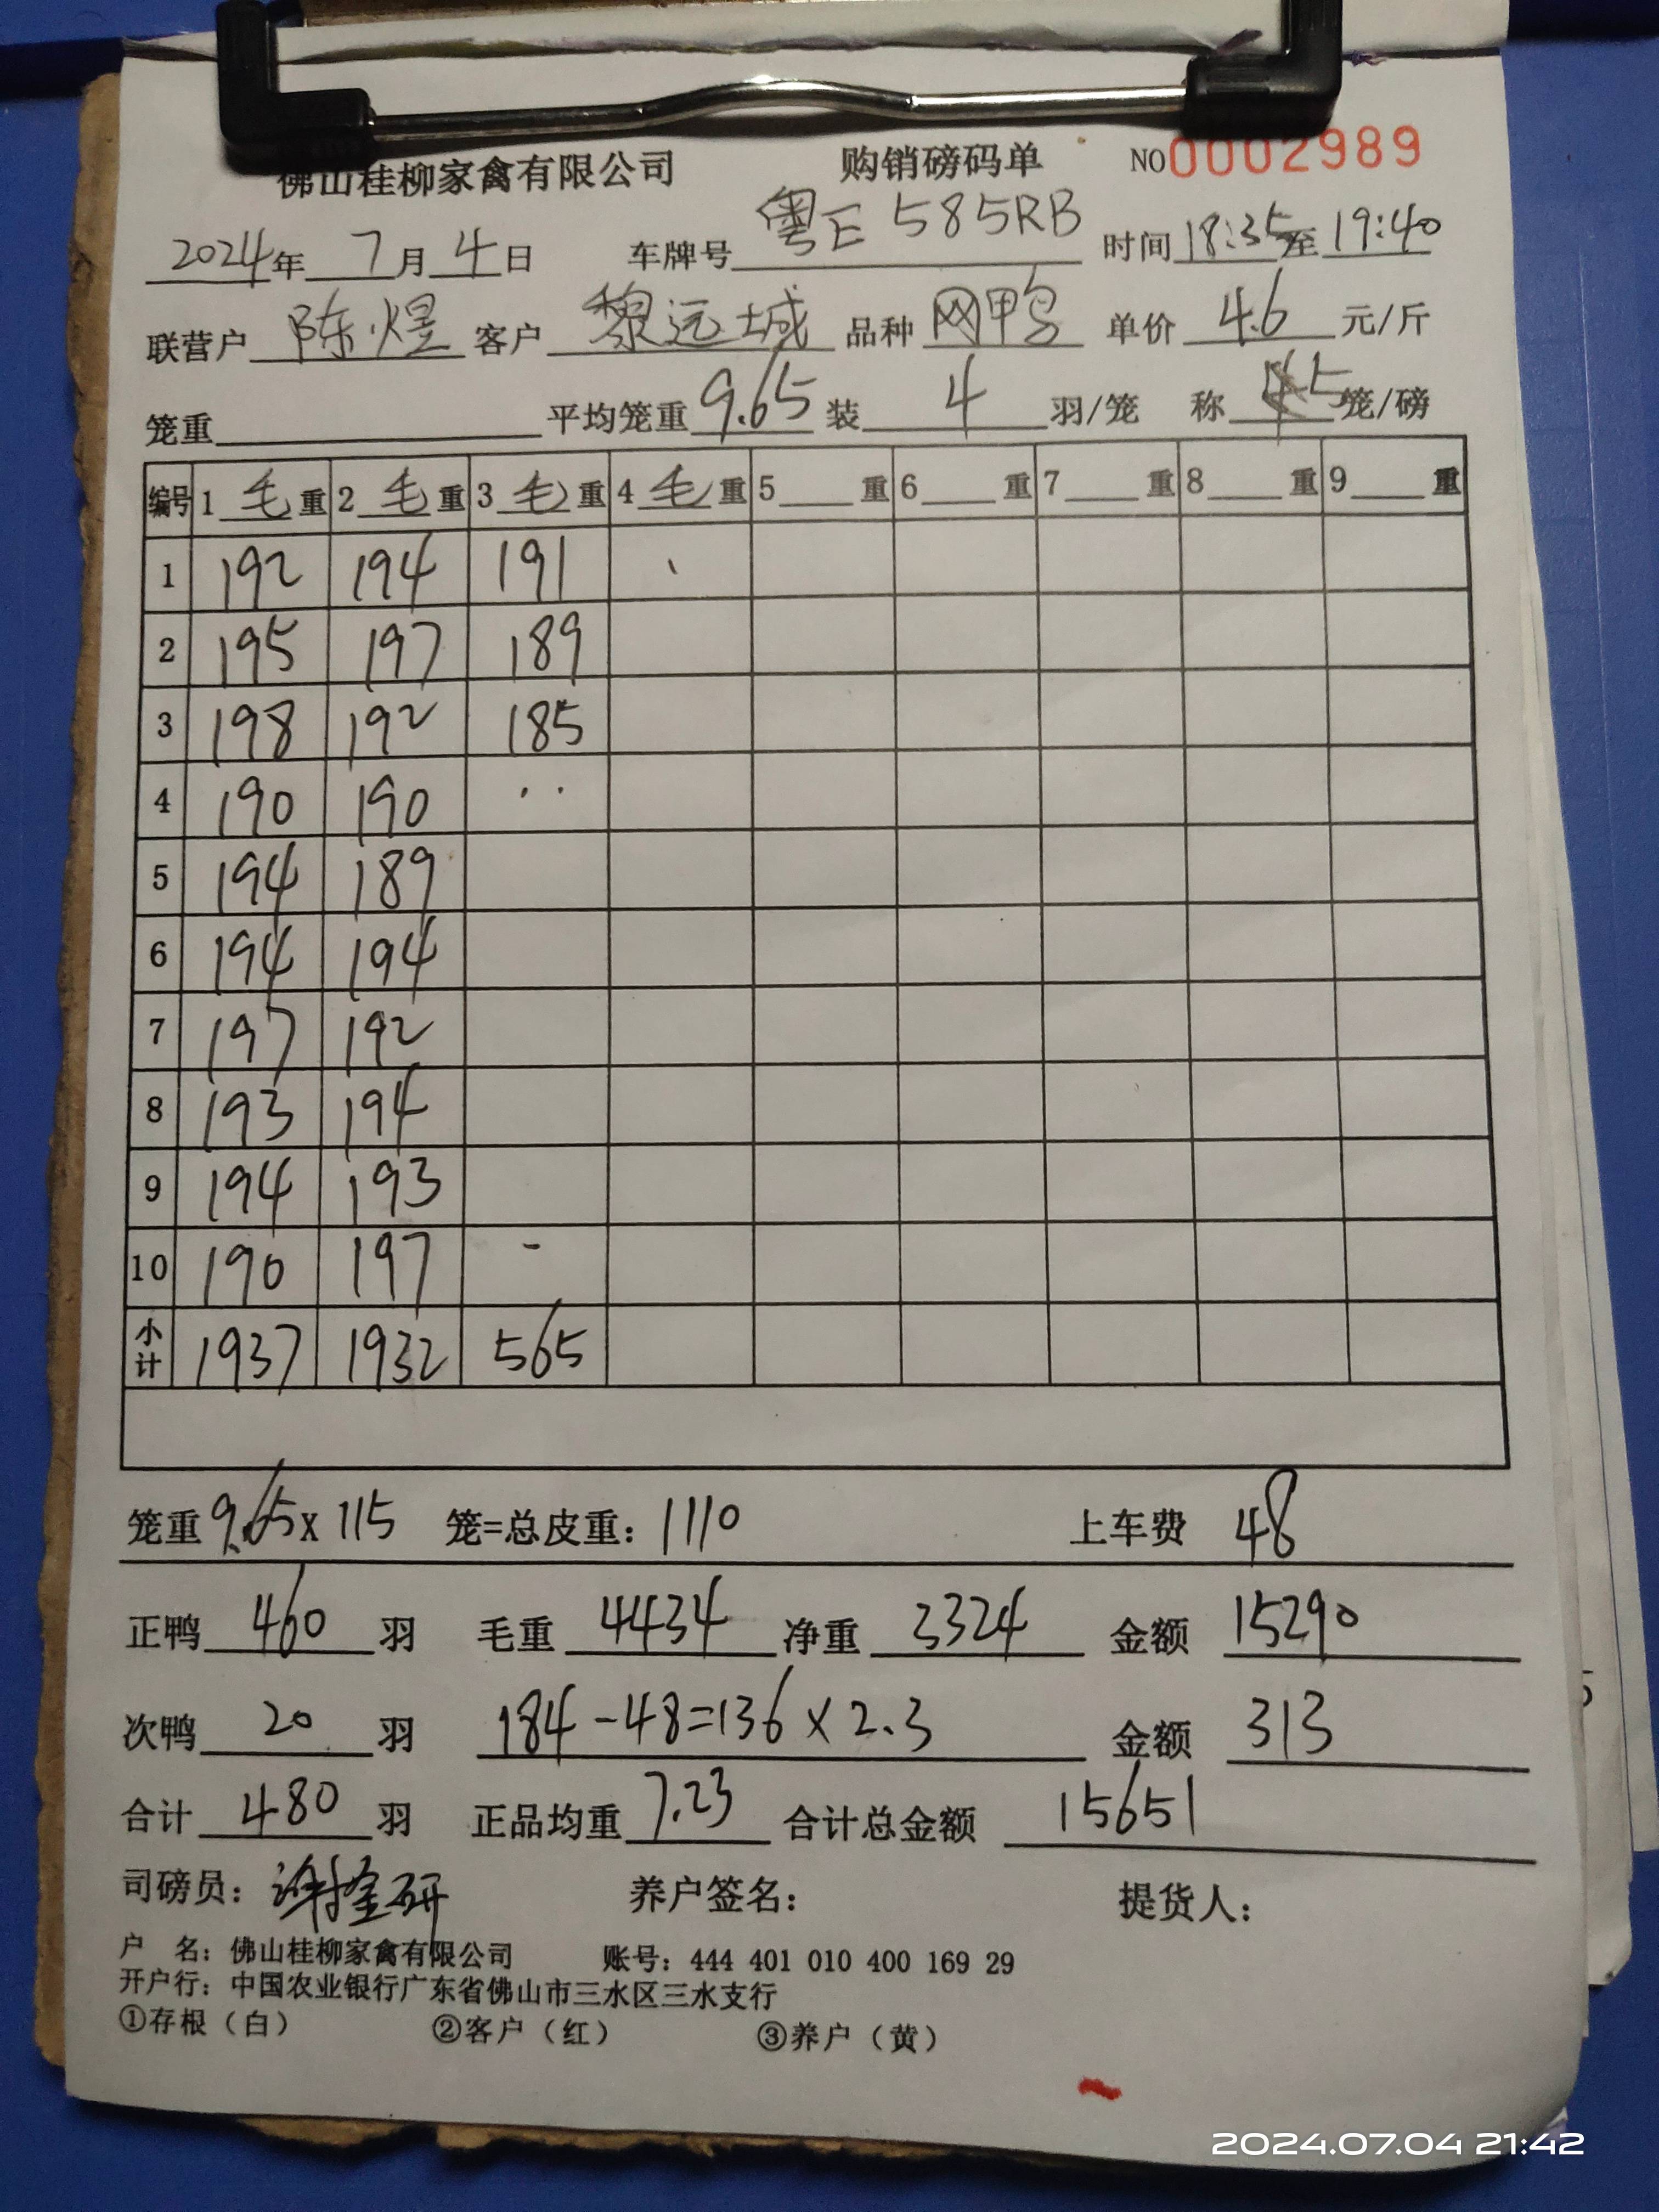 佛山桂柳家禽有限公司 购销磅码单 NO0002989
2024年7月4日 车牌号 粤E 585RB 时间18:35至19:40
联营户 陈煜 客户 黎远城 品种 网鸭 单价 4.6 元/斤
笼重 平均笼重 9.65 装 4 羽/笼 称 5 笼/磅
编号 1 毛 重 2 毛 重 3 毛 重 4 毛 重 5 重 6 重 7 重 8 重 9 重
1 192 194 191
2 195 197 189
3 198 192 185
4 190 190
5 194 189
6 194 194
7 197 192
8 193 194
9 194 193
10 190 197
小计 1937 1932 565
笼重 9.65x115 笼=总皮重：1110 上车费 48
正鸭 460 羽 毛重 4434 净重 3324 金额 15290
次鸭 20 羽 184-48=136×2.3 金额 313
合计 480 羽 正品均重 7.23 合计总金额 15651
司磅员： 养户签名： 提货人：
户 名：佛山桂柳家禽有限公司 账号：444 401 010 400 169 29
开户行：中国农业银行广东省佛山市三水区三水支行
①存根（白） ②客户（红） ③养户（黄）
2024.07.04 21:42